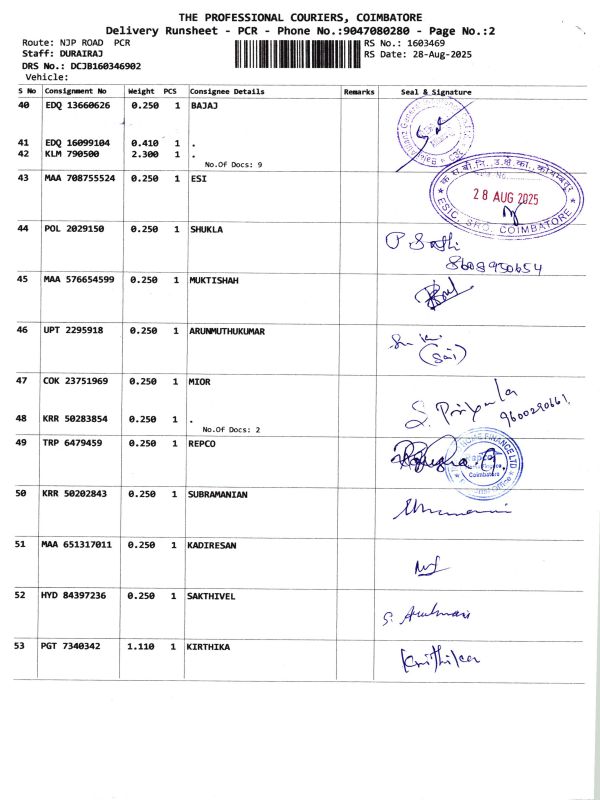 THE PROFESSIONAL COURIERS, COIMBATORE
Delivery Runsheet - PCR - Phone No.:9047080280 - Page No.:2
Route: NJP ROAD PCR
RS No.: 1603469
Staff: DURAIRAJ
RS Date: 28-Aug-2025
DRS No.: DCJB160346902
Vehicle:
S No Consignment No Weight PCS Consignee Details Remarks Seal & Signature
40 EDQ 13660626 0.250 1 BAJAJ
41 EDQ 16099104 0.410 1 .
42 KLM 790500 2.300 1 .
No.Of Docs: 9
43 MAA 708755524 0.250 1 ESI
28 AUG 2025
ESIC, SRO, COIMBATORE
44 POL 2029150 0.250 1 SHUKLA
P. Sathi
8608950654
45 MAA 576654599 0.250 1 MUKTISHAH
46 UPT 2295918 0.250 1 ARUNMUTHUKUMAR
(Sai)
47 COK 23751969 0.250 1 MIOR
S. Priyanka
9600290661
48 KRR 50283854 0.250 1 .
No.Of Docs: 2
49 TRP 6479459 0.250 1 REPCO
HOME FINANCE LTD
Coimbatore
50 KRR 50202843 0.250 1 SUBRAMANIAN
51 MAA 651317011 0.250 1 KADIRESAN
52 HYD 84397236 0.250 1 SAKTHIVEL
53 PGT 7340342 1.110 1 KIRTHIKA
Krithika